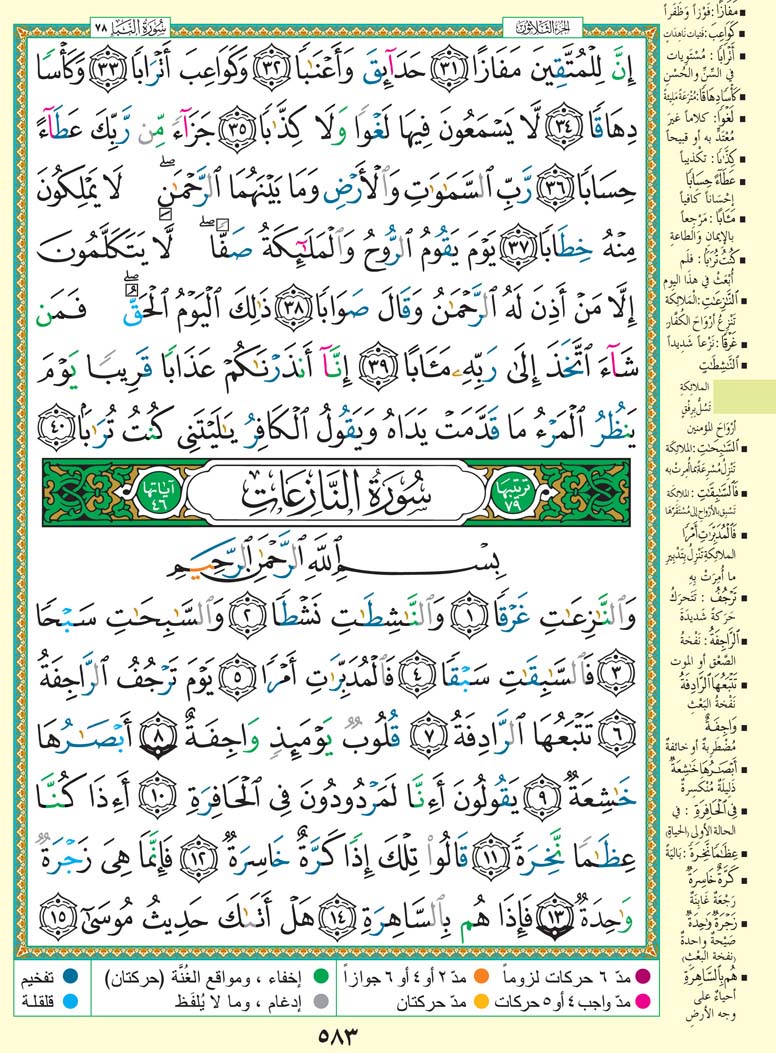 سُورَةُ النَّبَإِ ٧٨
الجزء الثلاثون
إِنَّ لِلْمُتَّقِينَ مَفَازًا ٣١ حَدَآئِقَ وَأَعْنَٰبًا ٣٢ وَكَوَاعِبَ أَتْرَابًا ٣٣ وَكَأْسًا
دِهَاقًا ٣٤ لَّا يَسْمَعُونَ فِيهَا لَغْوًا وَلَا كِذَّٰبًا ٣٥ جَزَآءً مِّن رَّبِّكَ عَطَآءً
حِسَابًا ٣٦ رَّبِّ ٱلسَّمَٰوَٰتِ وَٱلْأَرْضِ وَمَا بَيْنَهُمَا ٱلرَّحْمَٰنِۖ لَا يَمْلِكُونَ
مِنْهُ خِطَابًا ٣٧ يَوْمَ يَقُومُ ٱلرُّوحُ وَٱلْمَلَٰٓئِكَةُ صَفًّاۖ لَّا يَتَكَلَّمُونَ
إِلَّا مَنْ أَذِنَ لَهُ ٱلرَّحْمَٰنُ وَقَالَ صَوَابًا ٣٨ ذَٰلِكَ ٱلْيَوْمُ ٱلْحَقُّۖ فَمَن
شَآءَ ٱتَّخَذَ إِلَىٰ رَبِّهِۦ مَـَٔابًا ٣٩ إِنَّآ أَنذَرْنَٰكُمْ عَذَابًا قَرِيبًا يَوْمَ
يَنظُرُ ٱلْمَرْءُ مَا قَدَّمَتْ يَدَاهُ وَيَقُولُ ٱلْكَافِرُ يَٰلَيْتَنِى كُنتُ تُرَٰبًۢا ٤٠
ترتيبها ٧٩ سُورَةُ النَّازِعَاتِ آياتها ٤٦
بِسْمِ ٱللَّهِ ٱلرَّحْمَٰنِ ٱلرَّحِيمِ
وَٱلنَّٰزِعَٰتِ غَرْقًا ١ وَٱلنَّٰشِطَٰتِ نَشْطًا ٢ وَٱلسَّٰبِحَٰتِ سَبْحًا
٣ فَٱلسَّٰبِقَٰتِ سَبْقًا ٤ فَٱلْمُدَبِّرَٰتِ أَمْرًا ٥ يَوْمَ تَرْجُفُ ٱلرَّاجِفَةُ
٦ تَتْبَعُهَا ٱلرَّادِفَةُ ٧ قُلُوبٌ يَوْمَئِذٍ وَاجِفَةٌ ٨ أَبْصَٰرُهَا
خَٰشِعَةٌ ٩ يَقُولُونَ أَءِنَّا لَمَرْدُودُونَ فِى ٱلْحَافِرَةِ ١٠ أَءِذَا كُنَّا
عِظَٰمًا نَّخِرَةً ١١ قَالُوا۟ تِلْكَ إِذًا كَرَّةٌ خَاسِرَةٌ ١٢ فَإِنَّمَا هِىَ زَجْرَةٌ
وَٰحِدَةٌ ١٣ فَإِذَا هُم بِٱلسَّاهِرَةِ ١٤ هَلْ أَتَىٰكَ حَدِيثُ مُوسَىٰٓ ١٥
مَفَازًا: فَوْزاً وَظَفَراً
كَوَاعِبَ: فتيات ناهدات
أَتْرَابًا: مُسْتَوِيات
في السِّنِّ والحُسْنِ
كَأْسًا دِهَاقًا: مُتْرَعَةً مَلِيئَة
لَغْوًا: كلاماً غيرَ
مُعْتَدٍّ به أو قبيحاً
كِذَّٰبًا: تكذيباً
عَطَآءً حِسَابًا
إحْسَاناً كافياً
مَـَٔابًا: مَرْجِعاً
بالإيمانِ والطاعةِ
كُنتُ تُرَٰبًا: فلم
أُبْعَثْ في هذا اليوم
ٱلنَّٰزِعَٰتِ: الملائكة
تَنْزِعُ أرْوَاحَ الكُفَّار
غَرْقًا: نَزْعاً شَدِيداً
ٱلنَّٰشِطَٰتِ
الملائكةِ
تَسُلُّ بِرِفْقٍ
أرْوَاحَ المؤمنين
ٱلسَّٰبِحَٰتِ: الملائكة
تَنْزِلُ مُسْرِعَةً بما أُمِرَتْ به
فَٱلسَّٰبِقَٰتِ: الملائكة
تَسْبِقُ بالأرواحِ إلى مُسْتَقَرِّهَا
فَٱلْمُدَبِّرَٰتِ أَمْرًا
الملائكةِ تَنْزِلُ بِتَدْبِيرِ
ما أُمِرَتْ بِهِ
تَرْجُفُ: تَتَحركُ
حَرَكةً شَديدَةً
ٱلرَّاجِفَةُ: نَفْخَةُ
الصَّعْقِ أو الموتِ
تَتْبَعُهَا ٱلرَّادِفَةُ
نَفْخَةُ البَعْثِ
وَاجِفَةٌ
مُضْطَرِبةٌ أو خائفةٌ
أَبْصَٰرُهَا خَٰشِعَةٌ
ذَلِيلَةٌ مُنْكَسِرَةٌ
فِى ٱلْحَافِرَةِ: في
الحالة الأولى (الحياةِ)
عِظَٰمًا نَّخِرَةً: بَالِيَةً
كَرَّةٌ خَاسِرَةٌ
رَجْعَةٌ غابِنَةٌ
زَجْرَةٌ وَٰحِدَةٌ
صَيْحَةٌ واحدةٌ
(نفخة البَعْثِ)
هُم بِٱلسَّاهِرَةِ
أحياءٌ على
وجه الأرضِ
مدّ ٦ حركات لزوماً
مدّ ٢ أو ٤ أو ٦ جوازاً
إخفاء، ومواقع الغُنَّة (حركتان)
تفخيم
مدّ واجب ٤ أو ٥ حركات
مدّ حركتان
إدغام، وما لا يُلفَظ
قلقلة
٥٨٣